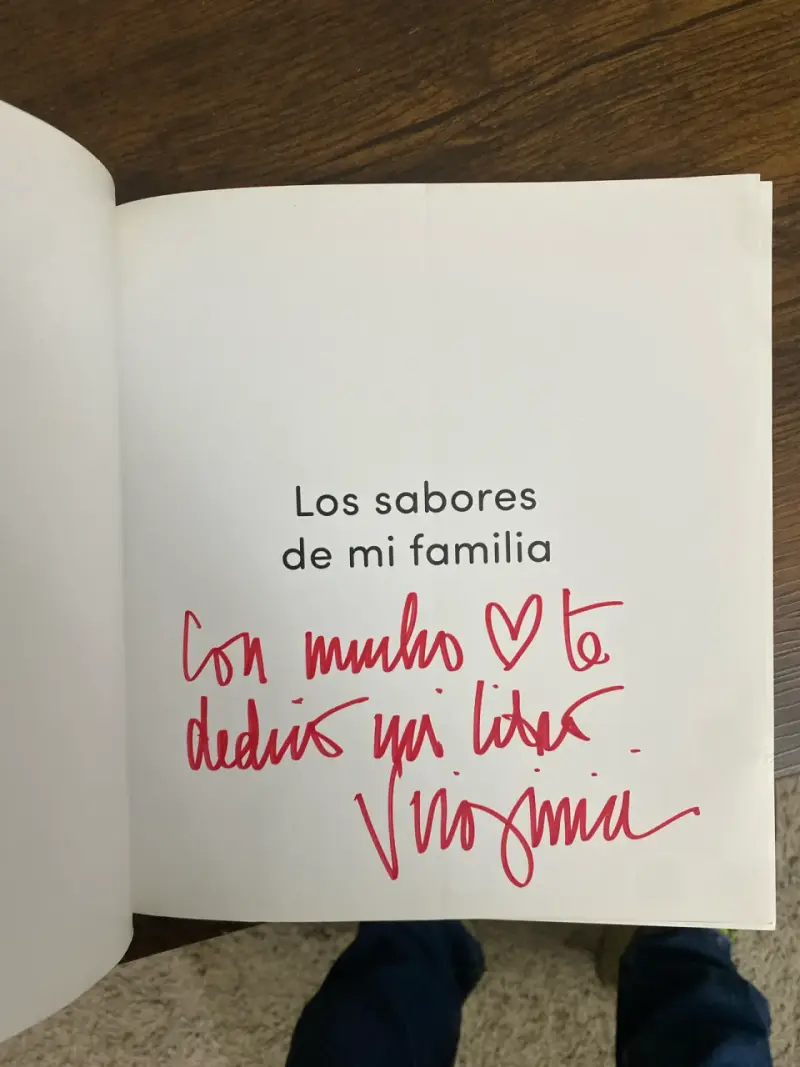 Los sabores
de mi familia
Con mucho ♡ te
dedico mi libro
Virginia